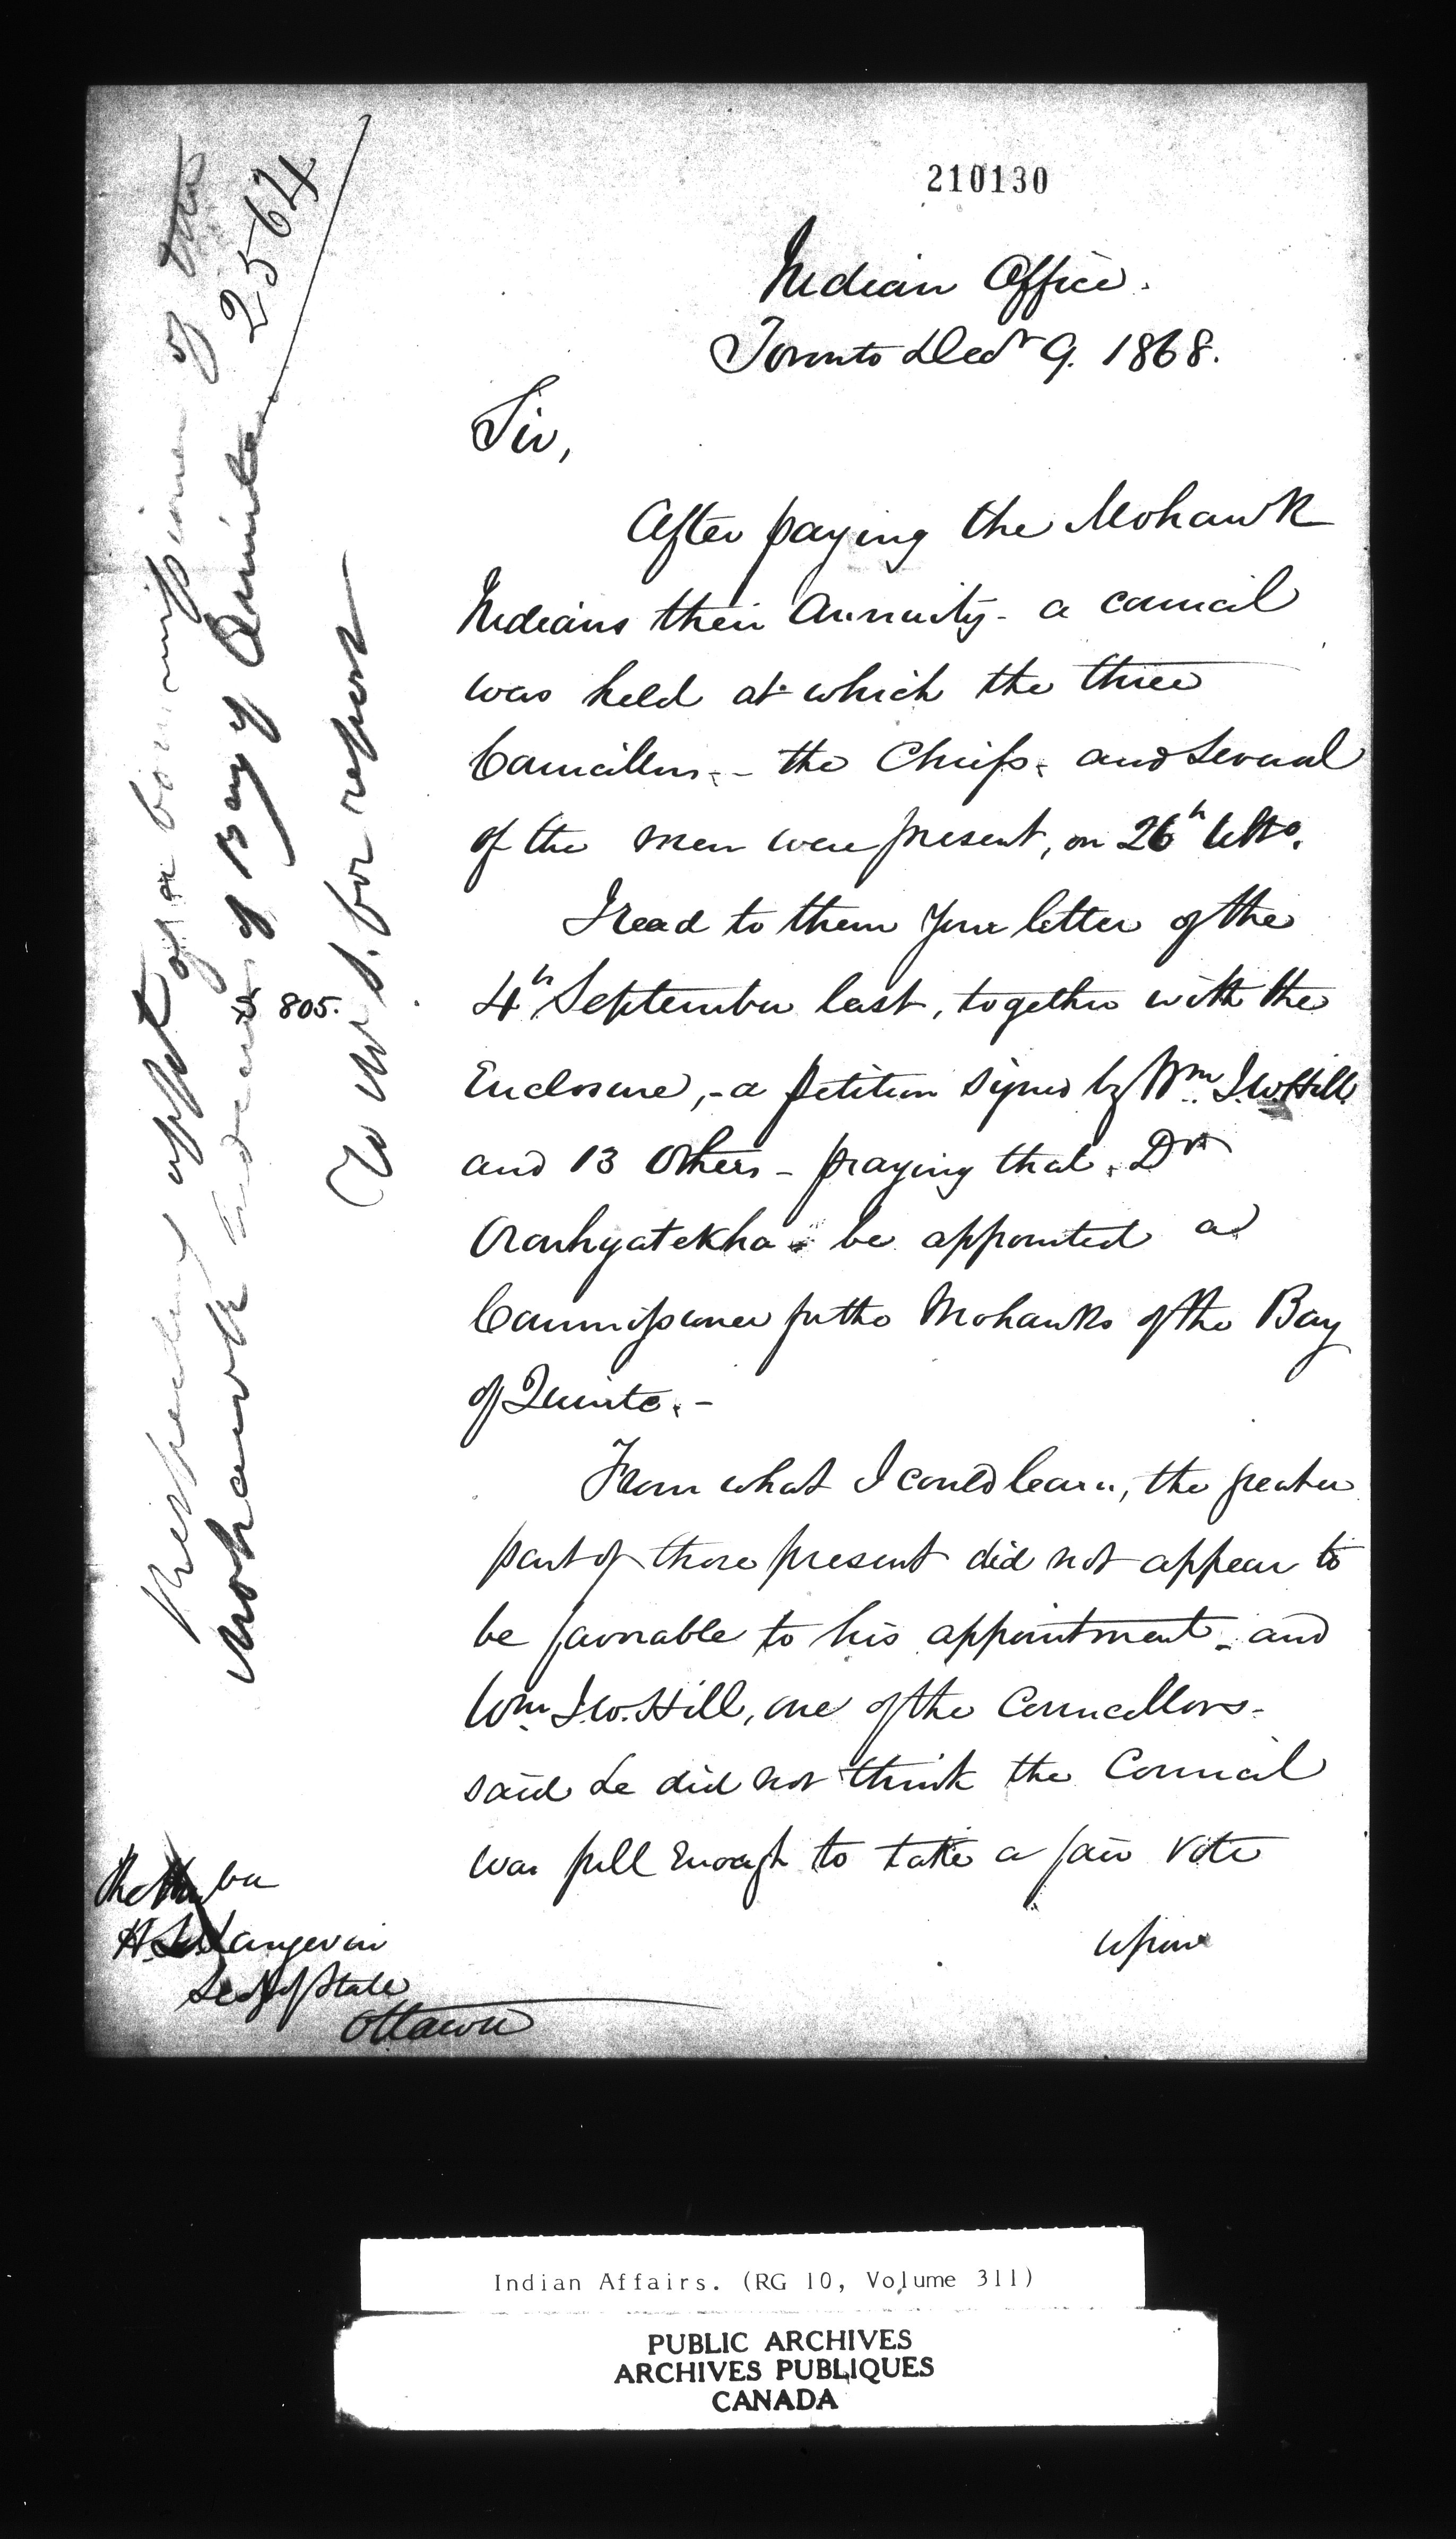 210130
Indian Office.
Toronto Decr 9. 1868.
Sir,
After paying the Mohawk
Indians their Annuity - a council
was held at which the three
Councillors, - the Chiefs, and several
of the men were present, on 26th Ulto.
I read to them your letter of the
4th September last, together with the
Enclosure, - a petition signed by Wm. J.W. Hill
and 13 Others - praying that Dr
Oronhyatekha be appointed a
Commissioner for the Mohawks of the Bay
of Quinte. -
From what I could learn, the greater
part of those present did not appear to
be favorable to his appointment - and
Wm J.W. Hill, one of the Councillors -
said he did not think the Council
was full enough to take a fair vote
upon
The Honble
H. L. Langevin
Secy of State
Ottawa
Respecting appt of a Commissioner of the
Mohawk Indians of Bay of Quinte
2564
805.
To W S. for report
Indian Affairs. (RG 10, Volume 311)
PUBLIC ARCHIVES
ARCHIVES PUBLIQUES
CANADA